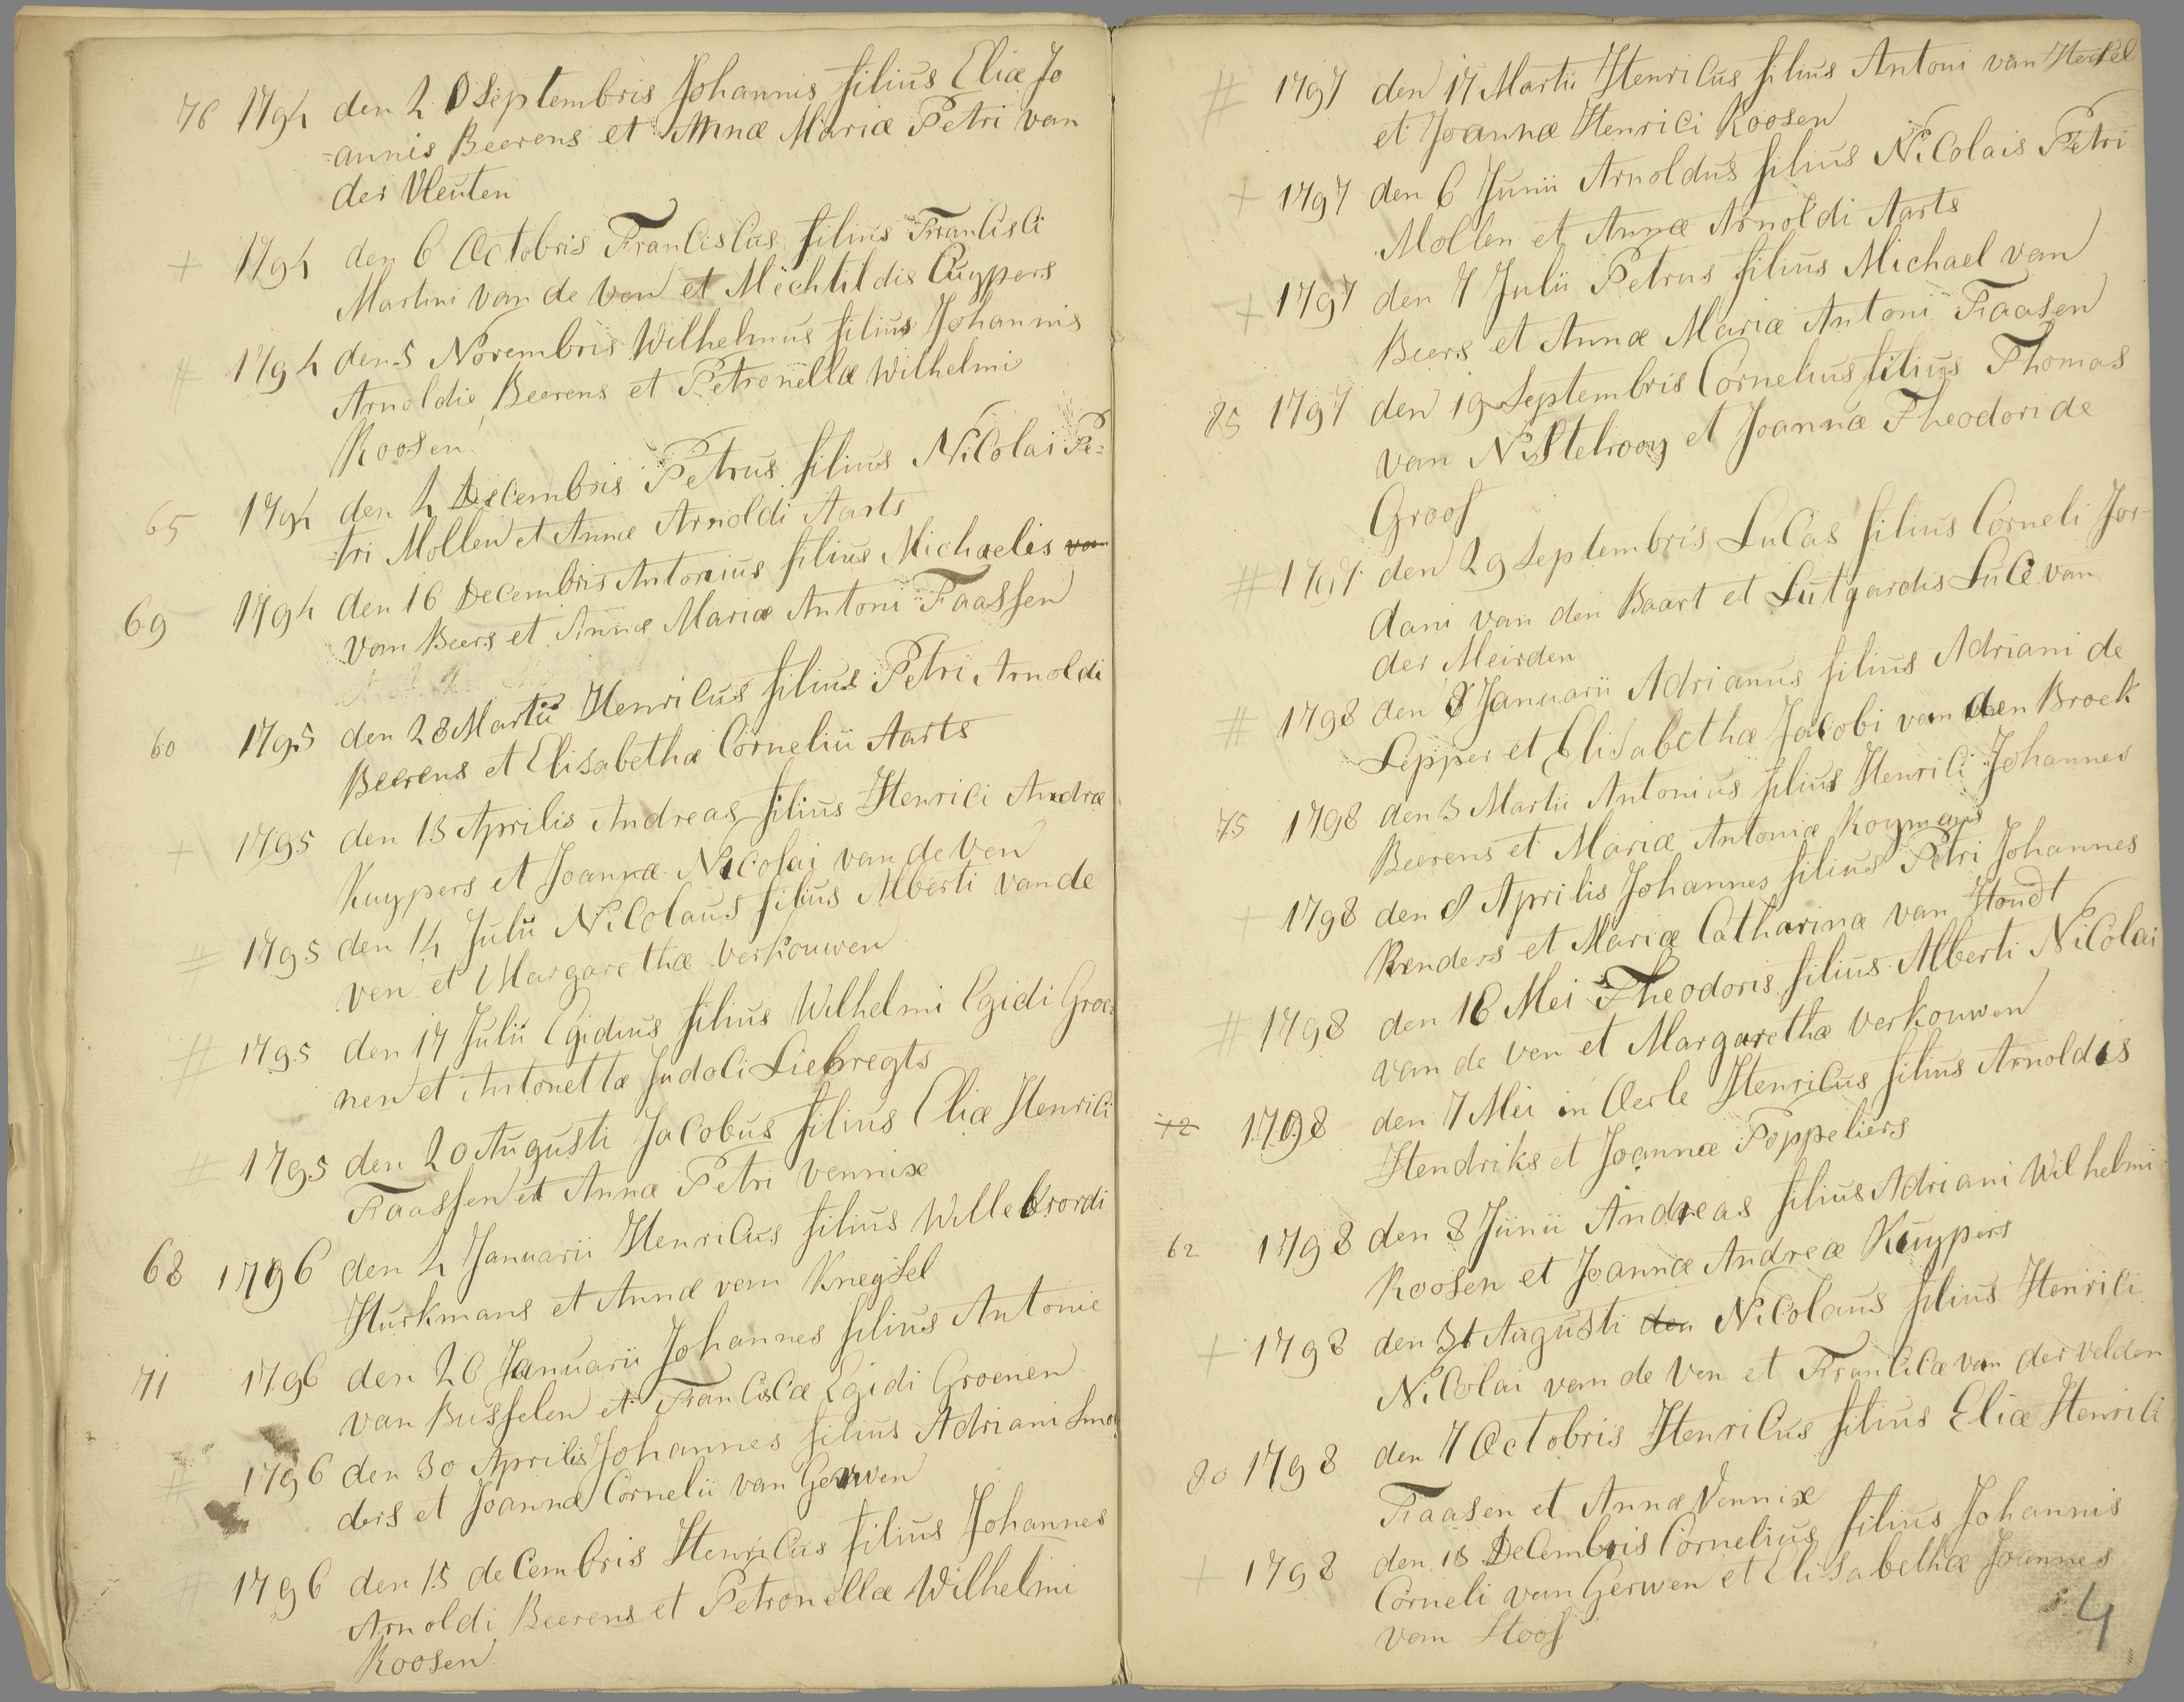 76 1794 den 20 Septembris Johannis filius Eliæ Jo
=annis Beerens et Annæ Mariæ Petri van
der Vleuten
+ 1794 den 6 Octobris Franciscus filius Francisci
Martini van de Ven et Mechtildis Cuypers
# 1794 den 5 Novembris Wilhelmus filius Johannis
Arnoldie Beerens et Petronellæ Wilhelmi
Roosen
65 1794 den 4 Decembris Petrus filius Nicolai Pe=
=tri Mollen et Annæ Arnoldi Aarts
69 1794 den 16 Decembris Antonius filius Michaelis van
van Beers et Annæ Mariæ Antoni Faassen
60 1795 den 28 Martii Henricus filius Petri Arnoldi
Beerens et Elisabethæ Cornelii Aarts
+ 1795 den 13 Aprilis Andreas filius Henrici Andræ
Kuypers et Joannæ Nicolai van de Ven
# 1795 den 14 Julii Nicolaus filius Alberti van de
ven et Margarethæ Verkouwen
# 1795 den 17 Julii Egidius filius Wilhelmi Egidi Groe=
nen et Antonetta Judoci Liebregts
# 1795 den 20 Augusti Jacobus filius Eliæ Henrici
Faassen et Annæ Petri Vennix
68 1796 den 4 Januarii Henricus filius Willebrordi
Hurkmans et Annæ van Knegsel
71 1796 den 26 Januarii Johannes filius Antonie
van Busselen et Franciscæ Egidi Groenen
# 1796 den 30 Aprilis Johannes filius Adriani Smo
ders et Joanna Cornelii van Gerwen
# 1796 den 15 decembris Henricus filius Johannes
Arnoldi Beerens et Petronellæ Wilhelmi
Roosen
# 1797 den 17 Martii Henricus filius Antoni van Hersel
et Joannæ Henrici Roosen
+ 1797 den 6 Junii Arnoldus filius Nicolais Petri
Mollen et Annæ Arnoldi Aarts
+ 1797 den 7 Julii Petrus filius Michael van
Beers et Annæ Mariæ Antoni Faasen
85 1797 den 19 Septembris Cornelius filius Thomas
van Nistelrooy et Joannæ Theodori de
Groof
# 1797 den 29 Septembris Lucas filius Corneli Jor-
dani van den Baart et Lutgardis Luce van
der Meirden
# 1798 den 8 Januarii Adrianus filius Adriani de
Lepper et Elisabethæ Jacobi van den Broek
75 1798 den 3 Martii Antonius filius Henrici Johannes
Beerens et Mariæ Antoniæ Koymans
+ 1798 den 8 Aprilis Johannes filius Petri Johannes
Renders et Mariæ Catharinæ van Houdt
# 1798 den 16 Mei Theodoris filius Alberti Nicolai
van de Ven et Margarethæ Verkouwen
72 1798 den 7 Mei in Oerle Henricus filius Arnoldis
Hendriks et Joannæ Poppeliers
62 1798 den 8 Junii Andreas filius Adriani Wilhelmi
Roosen et Joannæ Andreæ Kuypers
+ 1798 den 31 Augusti den Nicolaus filius Henrici
Nicolai van de Ven et Francicæ van der velden
80 1798 den 7 Octobris Henricus filius Eliæ Henrici
Faasen et Annæ Vennix
+ 1798 den 18 Decembris Cornelius filius Johannis
Corneli van Gerwen et Elisabethæ Joannes
van Hoof
4